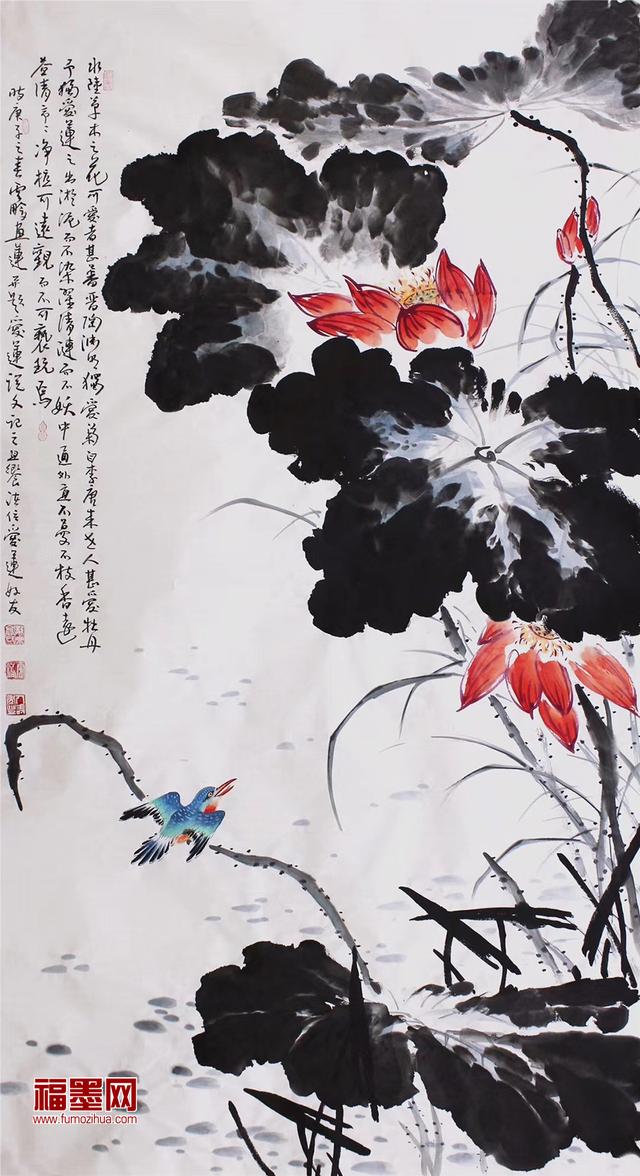 水陸草木之花可愛者甚蕃晋陶淵明獨愛菊自李唐来世人甚愛牡丹
予獨愛蓮之出淤泥而不染濯清漣而不妖中通外直不蔓不枝香遠
益清亭〻净植可遠觀而不可褻玩焉
时庚子之春畫蓮并題愛蓮説文記之且饗诸位愛蓮好友
福墨网
www.fumozihua.com